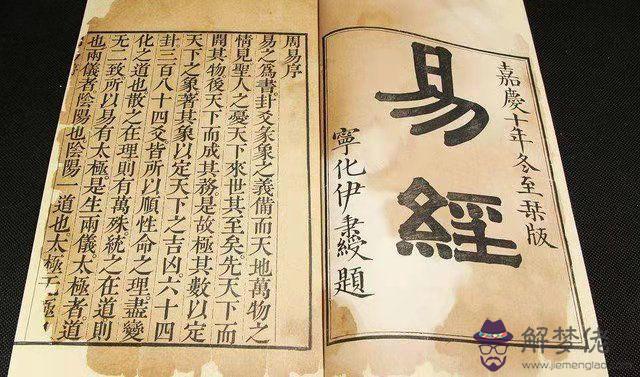 嘉慶十年冬至栞版
易經
寧化伊秉綬題
周易序
易之爲書卦爻彖象之義備而天地萬物之
情見聖人之憂天下來世其至矣。先天下而
開其物後天下而成其務是故極其數以定
天下之象著其象以定天下之吉凶六十四
卦三百八十四爻皆所以順性命之理。盡變
化之道也散之在理則有萬殊統之在道則
无二致所以易有太極是生兩儀。太極者道
也兩儀者陰陽也陰陽一道也太極无極
解梦佬
www.jiemenglao.com